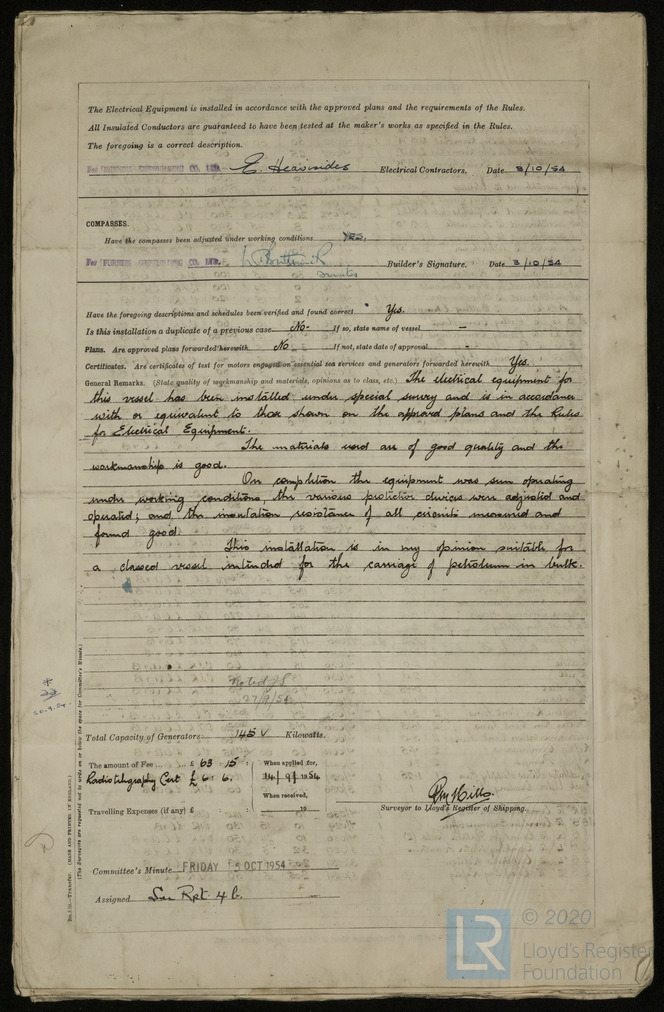 The Electrical Equipment is installed in accordance with the approved plans and the requirements of the Rules.
All Insulated Conductors are guaranteed to have been tested at the maker's works as specified in the Rules.
The foregoing is a correct description.
For CO. LTD. E. Heavisides Electrical Contractors. Date 3/10/54
COMPASSES.
Have the compasses been adjusted under working conditions Yes.
For FURNESS SHIPBUILDING CO. LTD. Builder's Signature. Date 3/10/54
Have the foregoing descriptions and schedules been verified and found correct Yes.
Is this installation a duplicate of a previous case No- If so, state name of vessel -
Plans. Are approved plans forwarded herewith No If not, state date of approval -
Certificates. Are certificates of test for motors engaged on essential sea services and generators forwarded herewith Yes.
General Remarks. (State quality of workmanship and materials, opinions as to class, etc.) The electrical equipment for
this vessel has been installed under special survey and is in accordance
with or equivalent to those shown on the approved plans and the Rules
for Electrical Equipment.
The materials used are of good quality and the
workmanship is good.
On completion the equipment was seen operating
under working conditions, the various protective devices were adjusted and
operated; and the insulation resistance of all circuits measured and
found good.
This installation is in my opinion suitable for
a classed vessel intended for the carriage of petroleum in bulk.
Noted JS
27/9/54
Total Capacity of Generators 145 Kilowatts.
The amount of Fee ... £ 63 : 15 : When applied for,
Radiotelegraphy Cert £ 6 : 6. 14/9/1954
When received,
Travelling Expenses (if any) £ 19
Surveyor to Lloyd's Register of Shipping.
Committee's Minute FRIDAY 15 OCT 1954
Assigned See Rpt 4b.
(The Surveyors are requested not to write on or below the space for Committee's Minute.)
(MADE AND PRINTED IN ENGLAND.)
Transfer.
LR © 2020
Lloyd's Register
Foundation